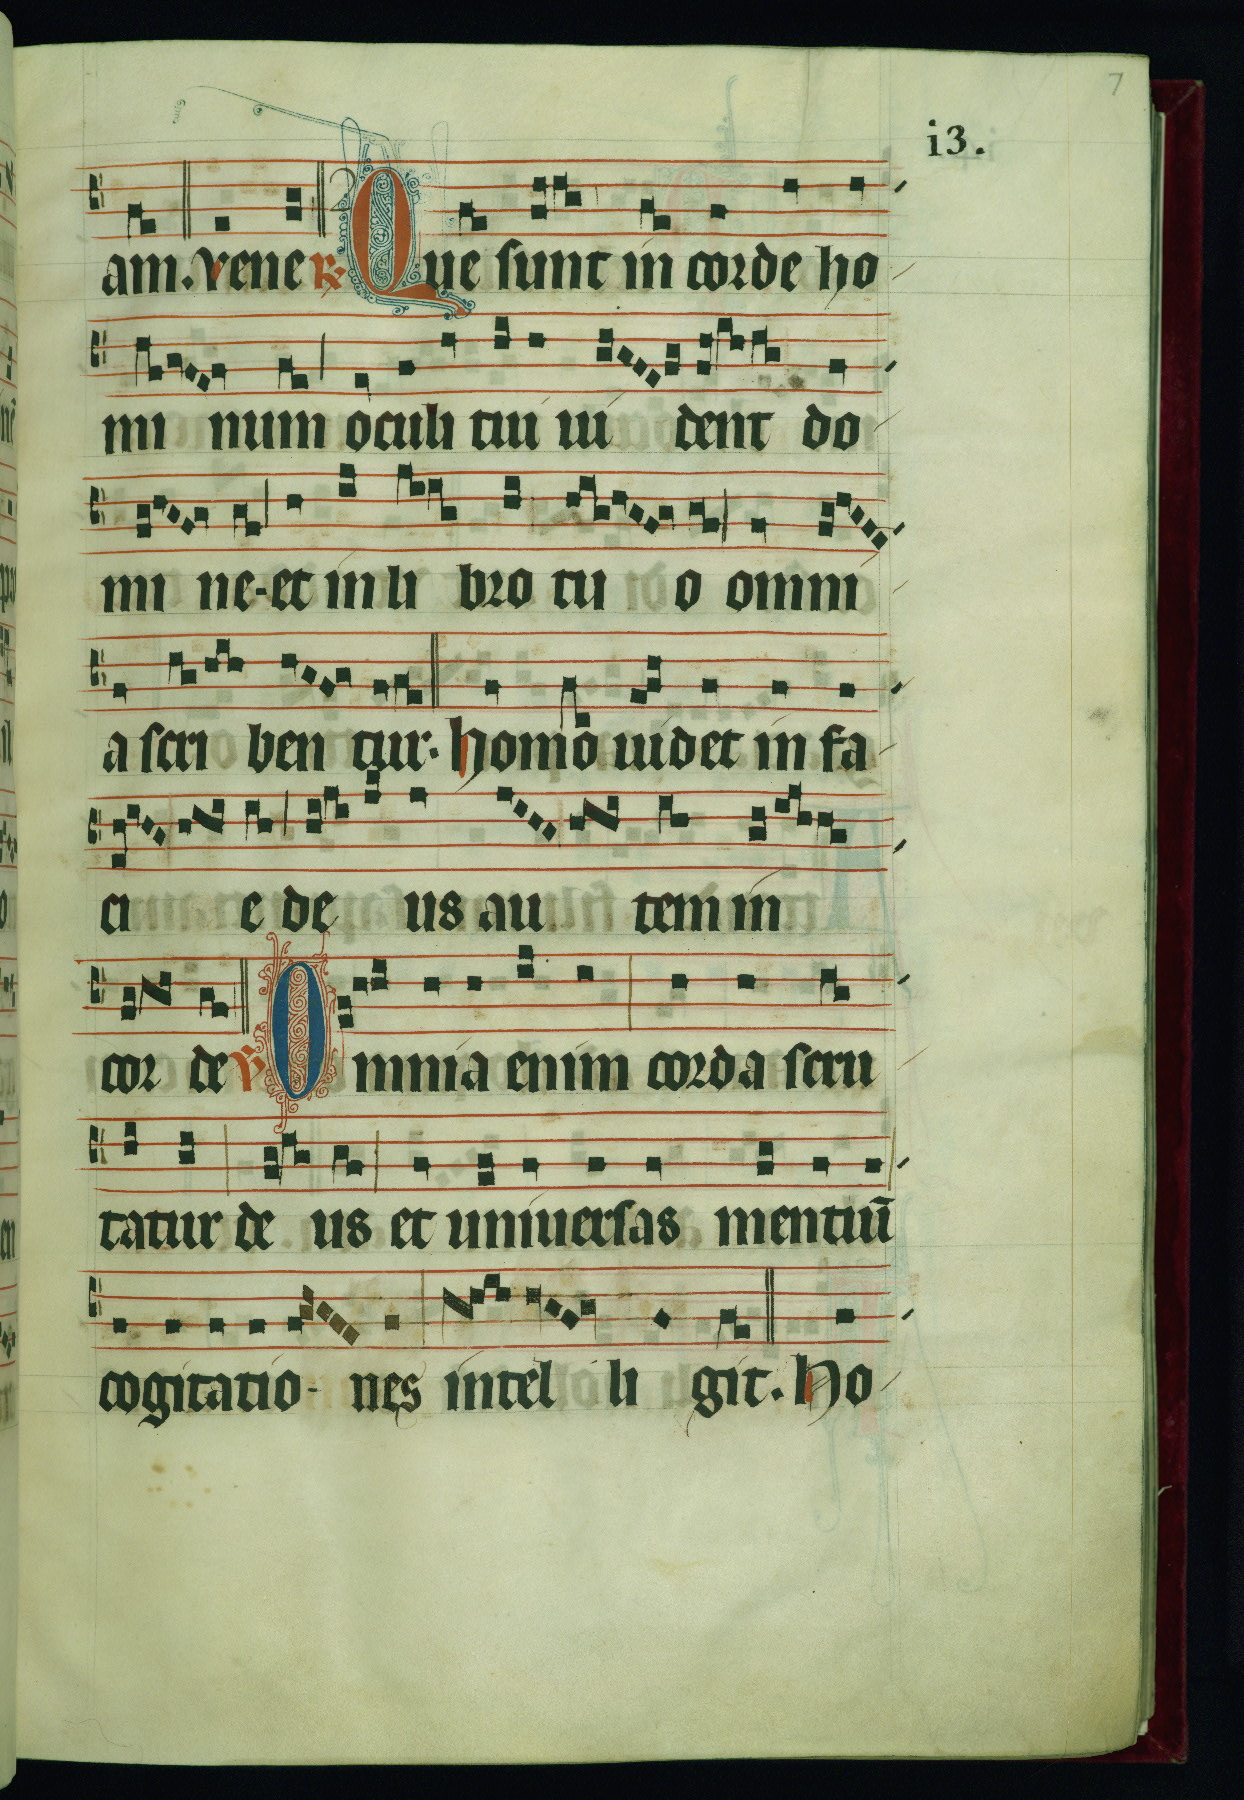 7
i3.
am. vene ℟ Que sunt in corde ho
mi num oculi tui ui dent do
mi ne-et in li bro tu o omni
a scri ben tur. homo uidet in fa
ci e de us au tem in
cor de ℣ Omnia enim corda scru
tatur de us et uniuersas mentiū
cogitatio- nes intel li git. ho